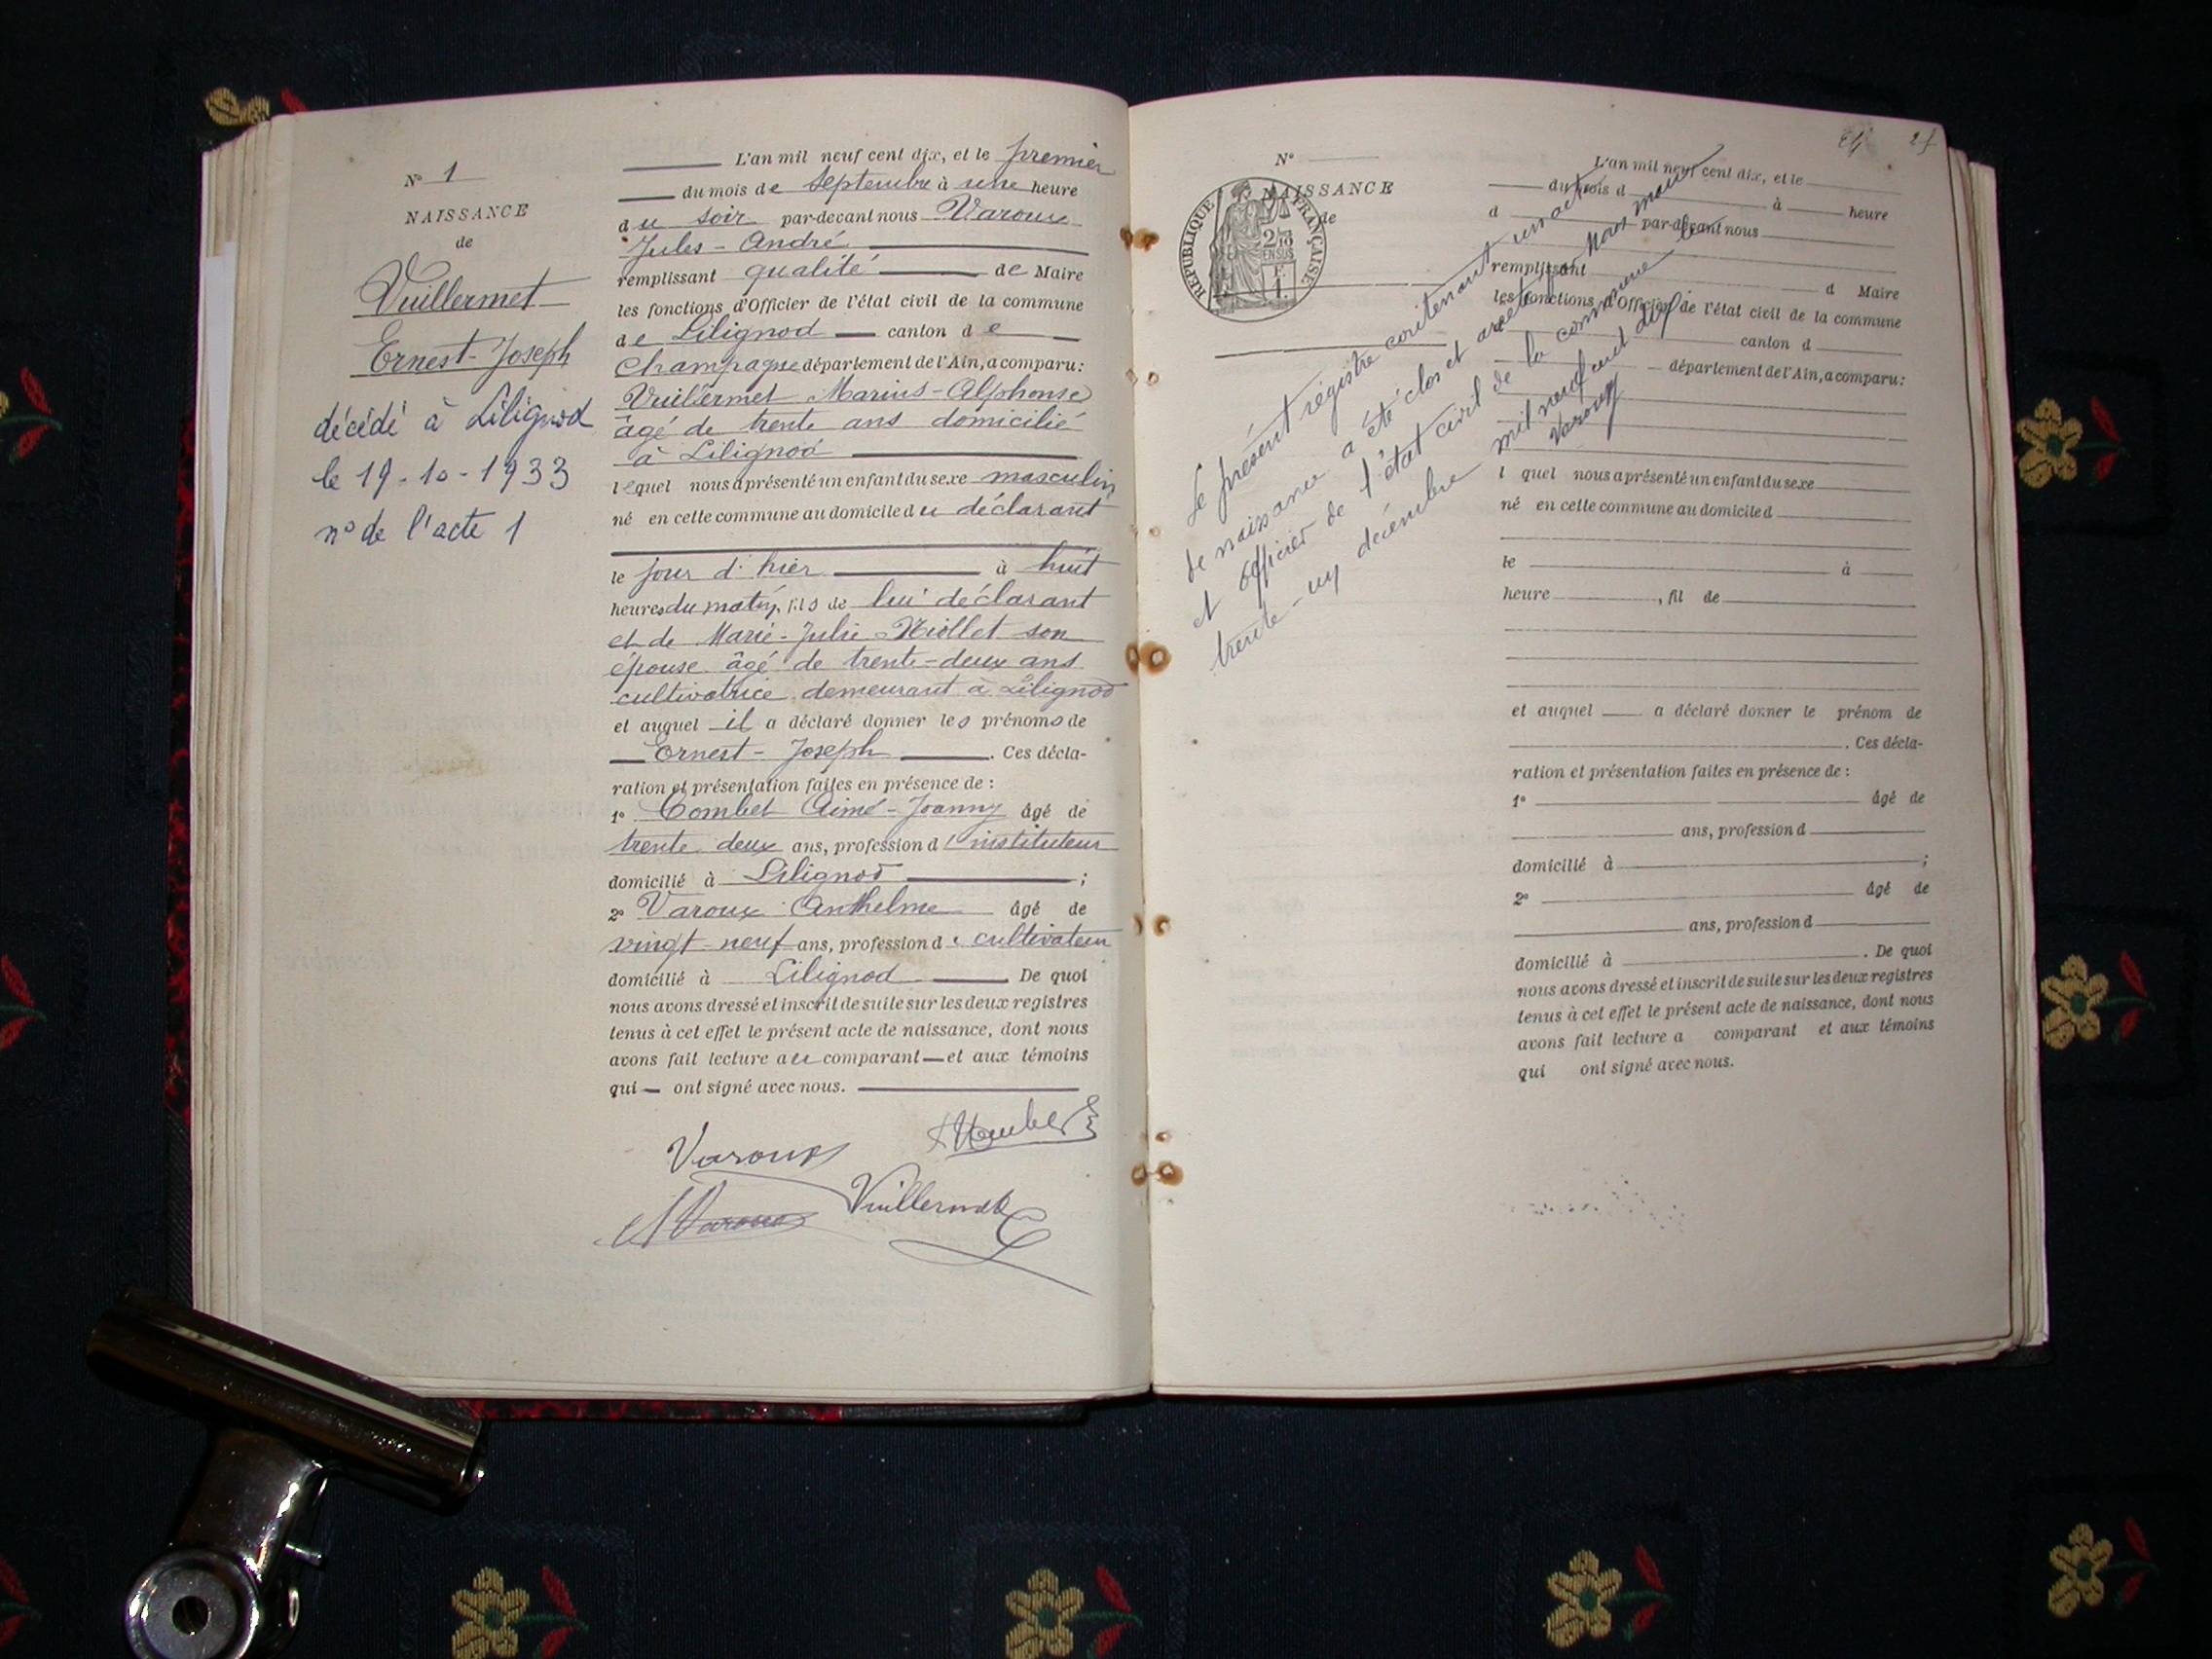 N° 1
NAISSANCE
de
Vuillermet
Ernest-Joseph
décédé à Lilignod
le 19-10-1933
n° de l'acte 1
L'an mil neuf cent dix, et le premier
du mois de Septembre à une heure
du soir par-devant nous Varoux
Jules-André
remplissant qualité de Maire
les fonctions d'Officier de l'état civil de la commune
de Lilignod canton de
Champagne département de l'Ain, a comparu:
Vuillermet Marius-Alphonse
âgé de trente ans domicilié
à Lilignod
lequel nous a présenté un enfant du sexe masculin
né en cette commune au domicile du déclarant
le jour d'hier à huit
heures du matin, fils de lui déclarant
et de Marie-Julie son
épouse âgé de trente-deux ans
cultivatrice demeurant à Lilignod
et auquel il a déclaré donner les prénoms de
Ernest-Joseph. Ces décla-
ration et présentation faites en présence de :
1° Combet Aimé-Joanny âgé de
trente deux ans, profession d'instituteur
domicilié à Lilignod ;
2° Varoux Anthelme âgé de
vingt-neuf ans, profession de cultivateur
domicilié à Lilignod De quoi
nous avons dressé et inscrit de suite sur les deux registres
tenus à cet effet le présent acte de naissance, dont nous
avons fait lecture au comparant et aux témoins
qui ont signé avec nous.
Varoux
A Varoux
Vuillermet
24
N°
NAISSANCE
de
RÉPUBLIQUE FRANÇAISE
2/10
EN SUS
F.
1.
L'an mil neuf cent dix, et le
du mois d à heure
d par-devant nous
remplissant d Maire
les fonctions d'Officier de l'état civil de la commune
canton d
département de l'Ain, a comparu:
l quel nous a présenté un enfant du sexe
né en cette commune au domicile d
le à
heure , fil de
et auquel a déclaré donner le prénom de
. Ces décla-
ration et présentation faites en présence de :
1° âgé de
ans, profession d
domicilié à ;
2° âgé de
ans, profession d
domicilié à . De quoi
nous avons dressé et inscrit de suite sur les deux registres
tenus à cet effet le présent acte de naissance, dont nous
avons fait lecture a comparant et aux témoins
qui ont signé avec nous.
Le présent régistre contenant un acte
de naissance a été clos et arrêté par Nous maire
et officier de l'état civil de la commune le
trente-un décembre mil neuf cent dix
Varoux